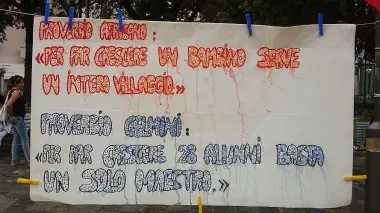 PROVERBIO AFRICANO :
«PER FAR CRESCERE UN BAMBINO SERVE
UN INTERO VILLAGGIO.»
PROVERBIO GELMINI :
«PER FAR CRESCERE 28 ALUNNI BASTA
UN SOLO MAESTRO.»